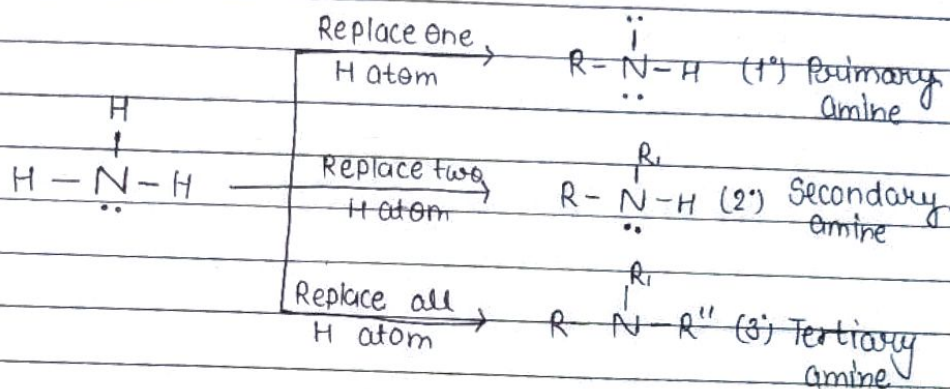 Replace one
H atom
¨
R - N - H (1°) Primary
¨
amine
H
H - N - H
¨
Replace two
H atom
R₁
R - N - H (2°) Secondary
¨
amine
Replace all
H atom
R₁
R - N - R'' (3°) Tertiary
amine